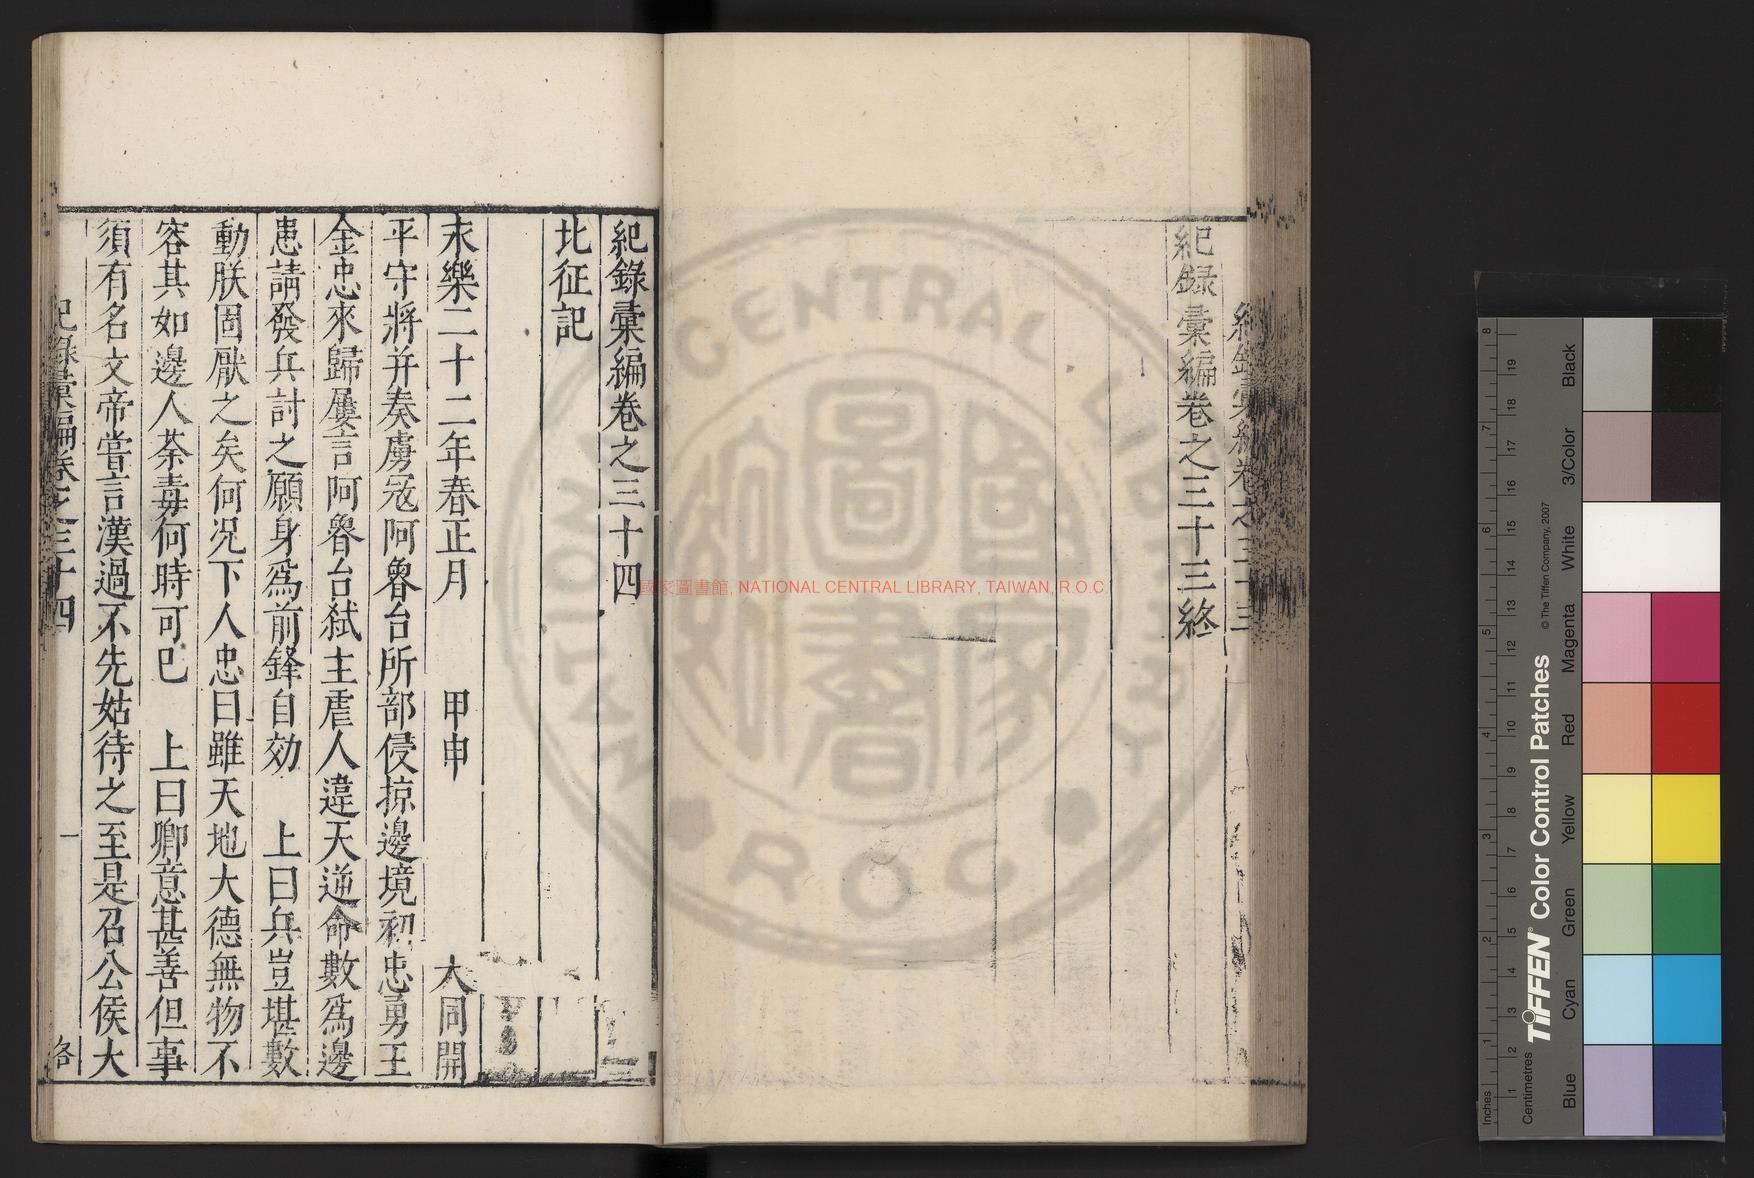 紀録彙編卷之三十三終
紀錄彙編卷之三十四
北征記
永樂二十二年春正月 甲申 大同開
平守將并奏虜冦阿魯台所部侵掠邊境初忠勇王
金忠來歸屢言阿魯台弑主虐人違天逆命數爲邊
患請發兵討之願身爲前鋒自効 上曰兵豈堪數
動朕固厭之矣何況下人忠曰雖天地大德無物不
容其如邊人荼毒何時可已 上曰卿意甚善但事
須有名文帝嘗言漢過不先姑待之至是召公侯大
紀錄彙編卷之三十四 一
國家圖書館, NATIONAL CENTRAL LIBRARY, TAIWAN, R.O.C
NATIONAL CENTRAL LIBRARY
R O C
國家圖書館
TIFFEN® Color Control Patches
© The Tiffen Company, 2007
Inches
Centimetres
Blue
Cyan
Green
Yellow
Red
Magenta
White
3/Color
Black